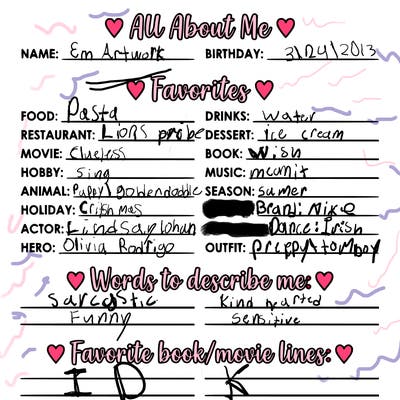 All About Me
NAME: Em Artwork BIRTHDAY: 3/24/2013
Favorites
FOOD: Pasta DRINKS: water
RESTAURANT: Lions pribe DESSERT: ice cream
MOVIE: Clueless BOOK: Wish
HOBBY: sing MUSIC: mconit
ANIMAL: Puppy/goldendoodle SEASON: sumer
HOLIDAY: Critshmas Brand: Nike
ACTOR: Lindsay lohan Dance: Irish
HERO: Olivia Rodrigo OUTFIT: preppy + tomboy
Words to describe me:
Sarcastic Kind hearted
Funny Sensitive
Favorite book/movie lines:
I D K